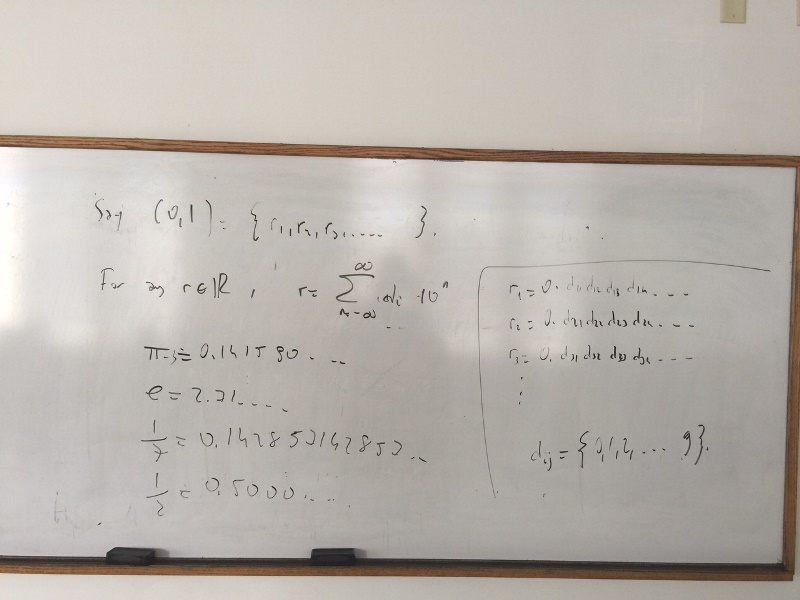 Say (0,1) = { r₁, r₂, r₃, .... }.
For any r ∈ ℝ, r = ∑_{n=-∞}^{∞} dᵢ · 10ⁿ
π-3 = 0.141590 . . ..
e = 2.71 . . . .
1/7 = 0.142857142857 . .
1/2 = 0.5000 . . . .
r₁ = 0. d₁₁ d₁₂ d₁₃ d₁₄ . . . .
r₂ = 0. d₂₁ d₂₂ d₂₃ d₂₄ . . . .
r₃ = 0. d₃₁ d₃₂ d₃₃ d₃₄ . . . .
⋮
dᵢⱼ = {0,1,2, ... 9}.